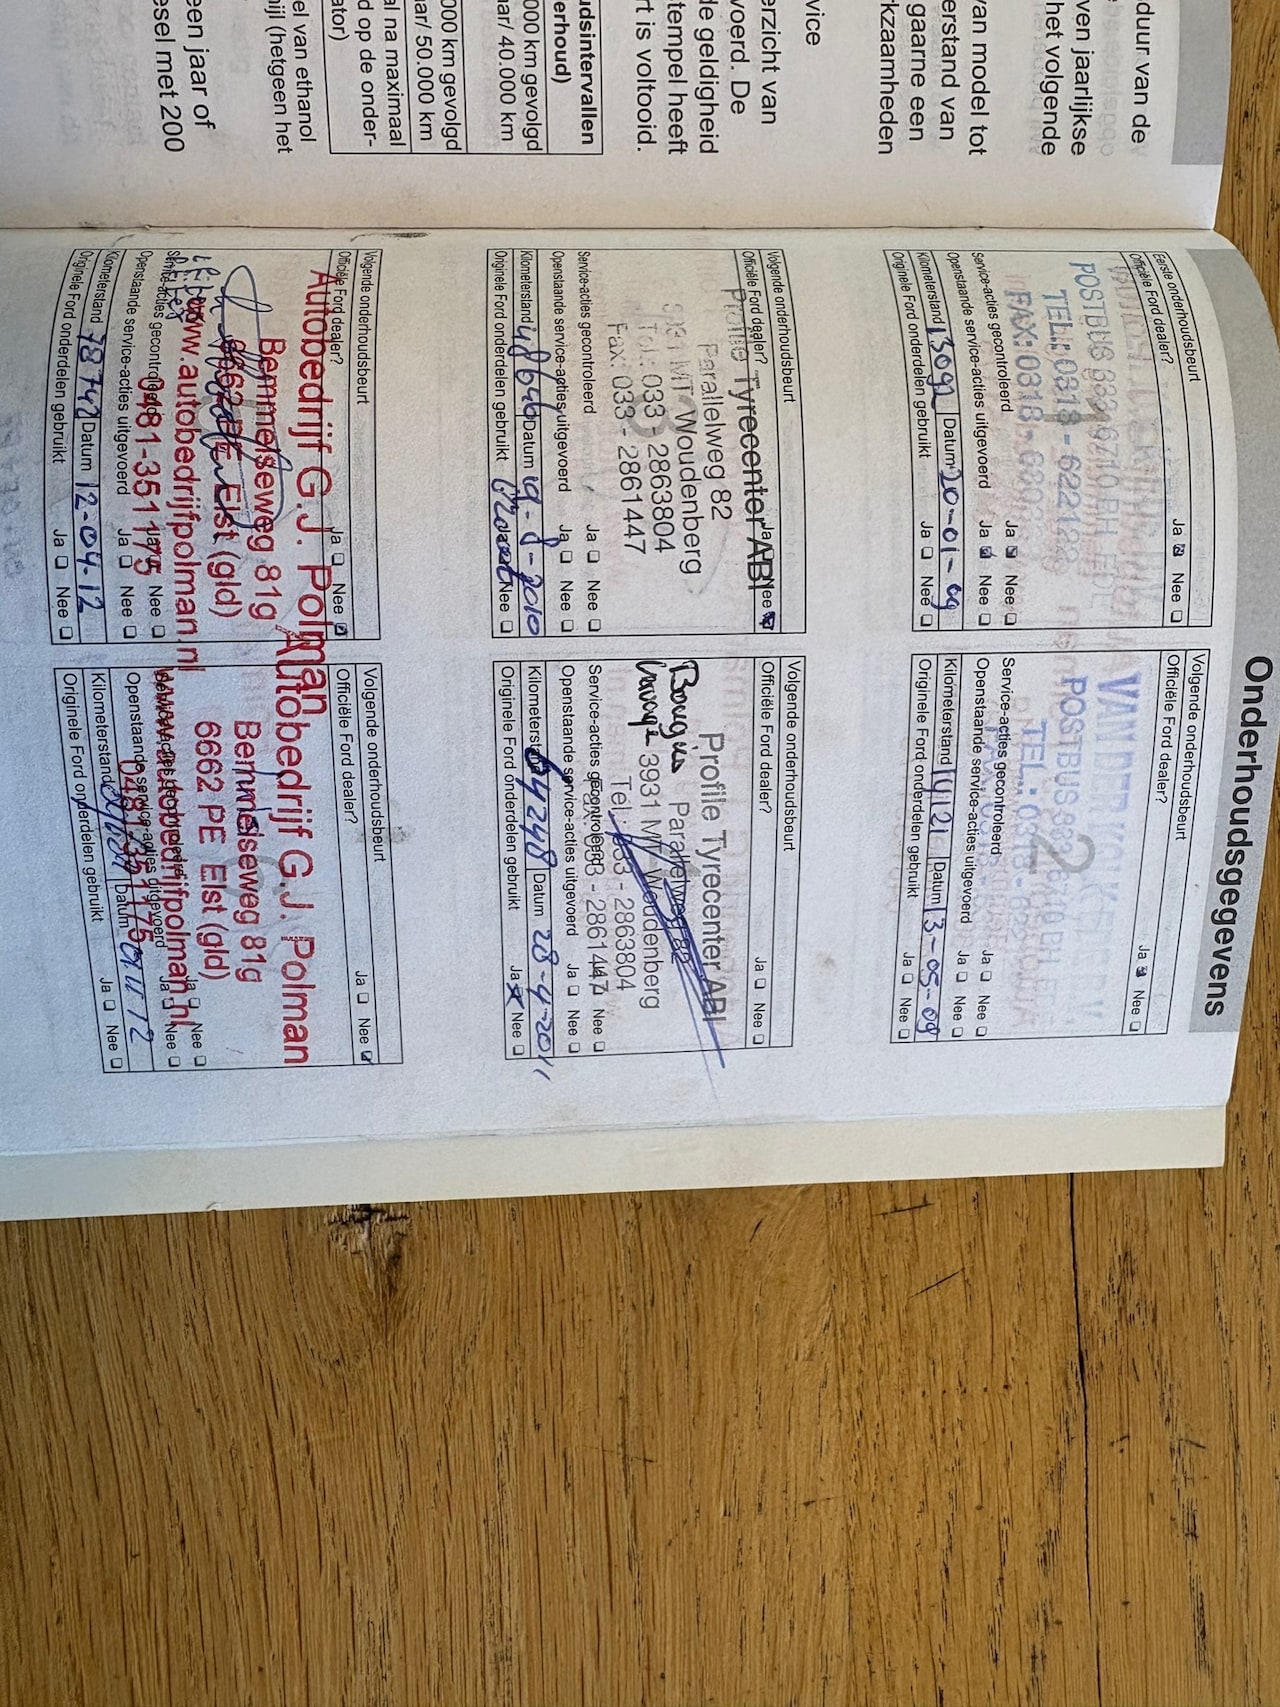 duur van de
ven jaarlijkse
het volgende
van model tot
erstand van
gaarne een
kzaamheden
vice
erzicht van
voerd. De
de geldigheid
tempel heeft
rt is voltooid.
udsintervallen
erhoud)
000 km gevolgd
aar/ 40.000 km
000 km gevolgd
aar/ 50.000 km
al na maximaal
d op de onder-
ator)
el van ethanol
nijl (hetgeen het
een jaar of
esel met 200
Onderhoudsgegevens
Eerste onderhoudsbeurt
Officiële Ford dealer? Ja Nee
POSTBUS 6710 BH
TEL.: 0318 - 622
FAX: 0318 -
Service-acties gecontroleerd Ja Nee
Openstaande service-acties uitgevoerd Ja Nee
Kilometerstand 13092 Datum 20-01-09
Originele Ford onderdelen gebruikt Ja Nee
Volgende onderhoudsbeurt
Officiële Ford dealer? Ja Nee
2
VAN DER
POSTBUS
TEL.: 0318 -
Service-acties gecontroleerd Ja Nee
Openstaande service-acties uitgevoerd Ja Nee
Kilometerstand Datum 13-05-09
Originele Ford onderdelen gebruikt Ja Nee
Volgende onderhoudsbeurt
Officiële Ford dealer? Ja Nee
Profile Tyrecenter ABI
Parallelweg 82
3931 MT Woudenberg
Tel.: 033 - 2863804
Fax: 033 - 2861447
Service-acties gecontroleerd Ja Nee
Openstaande service-acties uitgevoerd Ja Nee
Kilometerstand 48646 Datum 19-8-2010
Originele Ford onderdelen gebruikt Nee
Volgende onderhoudsbeurt
Officiële Ford dealer? Ja Nee
Profile Tyrecenter ABI
Parallelweg 82
3931 MT Woudenberg
Tel.: 033 - 2863804
Fax: 033 - 2861447
Service-acties gecontroleerd Nee
Openstaande service-acties uitgevoerd Ja Nee
Kilometerstand 64248 Datum 28-4-2011
Originele Ford onderdelen gebruikt Ja Nee
Volgende onderhoudsbeurt
Officiële Ford dealer? Ja Nee
Autobedrijf G.J. Polman
Bemmelseweg 81g
6662 PE Elst (gld)
www.autobedrijfpolman.nl
0481-351175
Service-acties gecontroleerd Ja Nee
Openstaande service-acties uitgevoerd Ja Nee
Kilometerstand 78742 Datum 12-04-12
Originele Ford onderdelen gebruikt Ja Nee
Volgende onderhoudsbeurt
Officiële Ford dealer? Ja Nee
Autobedrijf G.J. Polman
Bemmelseweg 81g
6662 PE Elst (gld)
www.autobedrijfpolman.nl
0481-351175
Service-acties gecontroleerd Ja Nee
Openstaande service-acties uitgevoerd Ja Nee
Kilometerstand Datum
Originele Ford onderdelen gebruikt Ja Nee